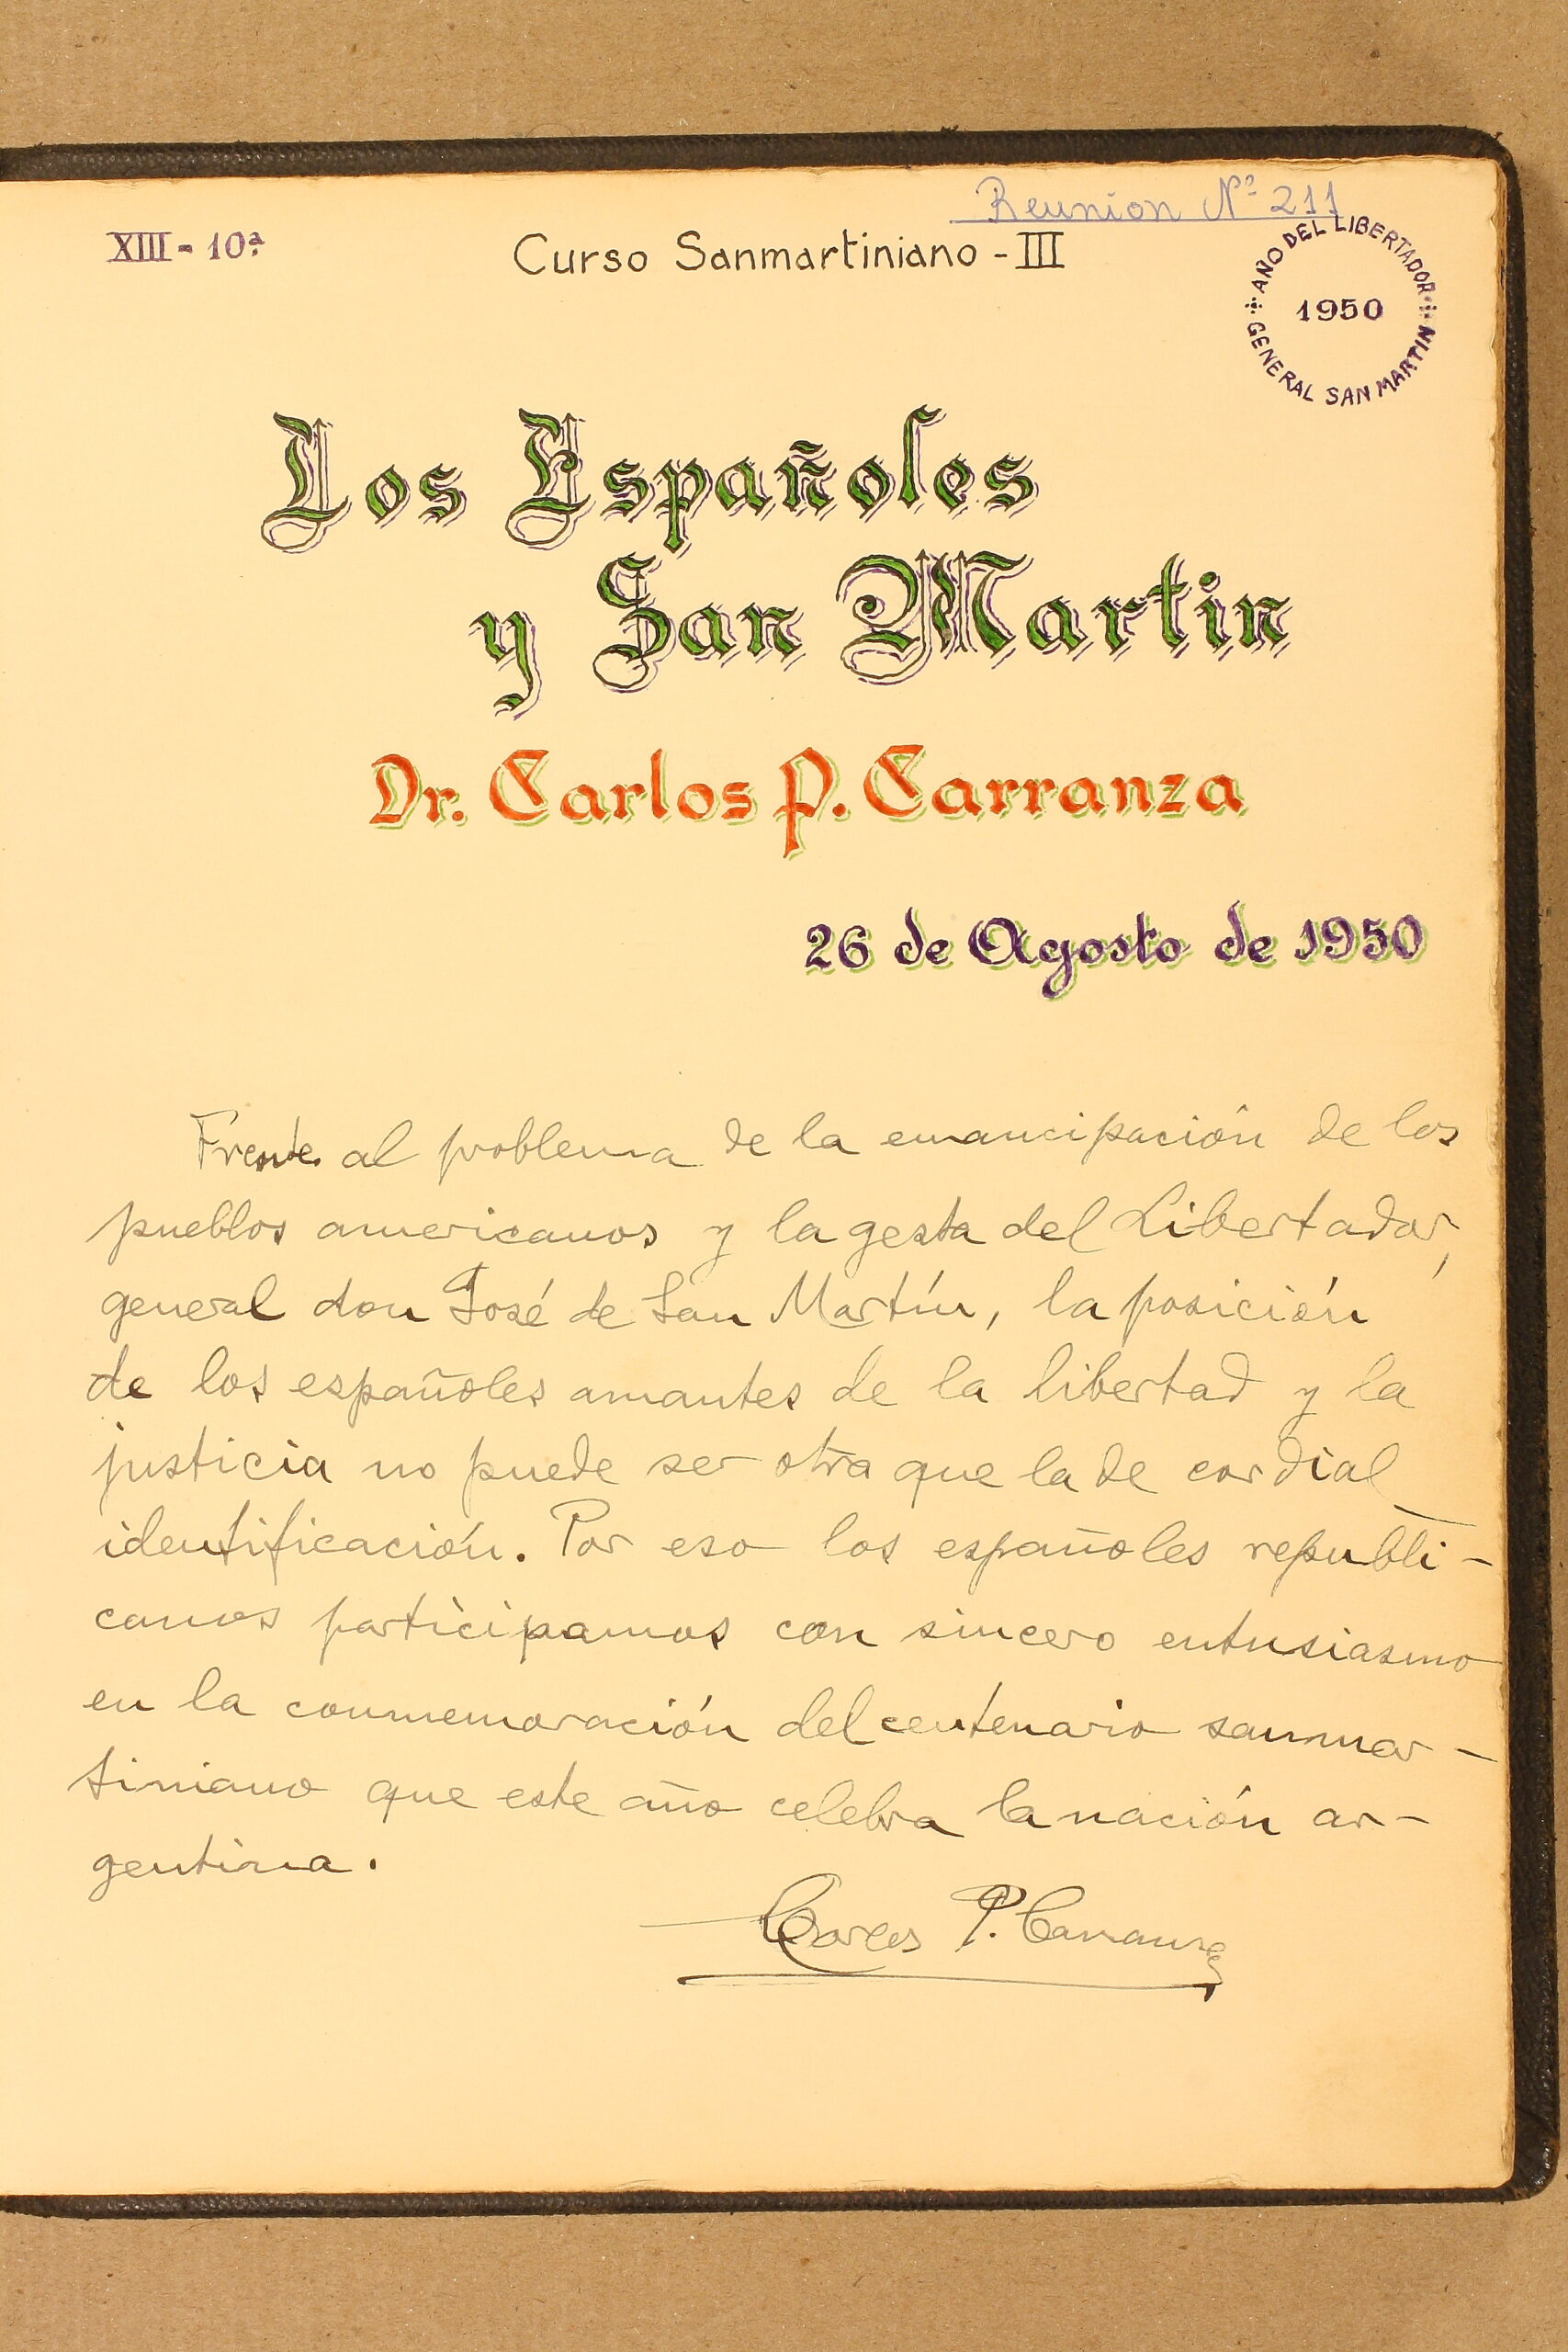 Reunion Nº 211
XIII - 10ª
Curso Sanmartiniano - III
AÑO DEL LIBERTADOR
GENERAL SAN MARTIN
1950
Los Españoles
y San Martin
Dr. Carlos P. Carranza
26 de Agosto de 1950
Frente al problema de la emancipación de los
pueblos americanos y la gesta del Libertador,
general don José de San Martín, la posición
de los españoles amantes de la libertad y la
justicia no puede ser otra que la de cordial
identificación. Por eso los españoles republi-
canos participamos con sincero entusiasmo
en la conmemoración del centenario sanmar-
tiniano que este año celebra la nación ar-
gentina.
Carlos P. Carranza